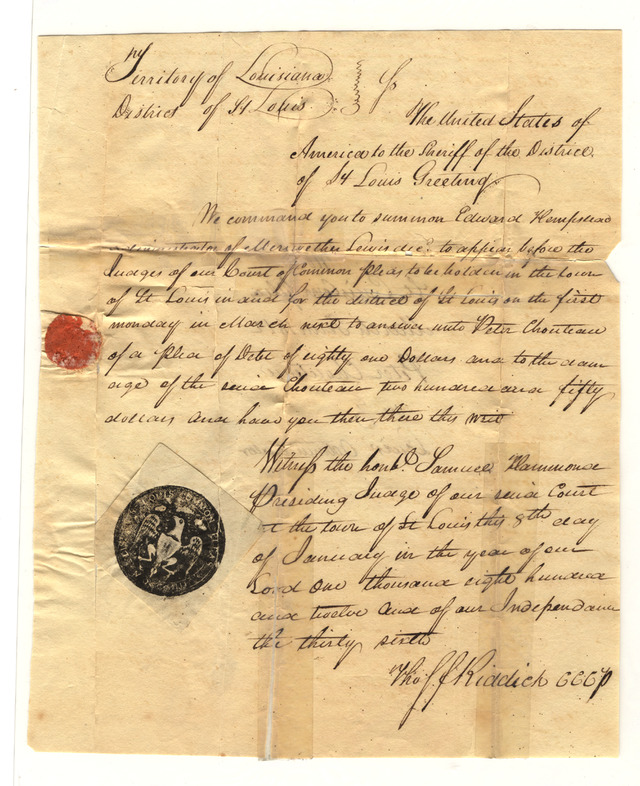 Territory of Louisiana
District of St Louis
The United States of
America to the Sheriff of the District
of St Louis Greeting
We command you to summon Edward Hempstead
administrator of Meriwether Lewis decd to appear before the
Judges of our Court of Common Pleas to be holden in the town
of St Louis in and for the district of St Louis on the first
monday in March next to answer unto Peter Chouteau
of a Plea of Debt of eighty one Dollars and to the dam
age of the said Chouteau two hundred and fifty
dollars and have you then there this writ
Witness the honbl Samuel Hammond
Presiding Judge of our said Court
at the town of St Louis this 8th day
of January in the year of our
Lord One thousand eight hundred
and twelve and of our Independance
the thirty sixth
Tho F Riddick CCCP